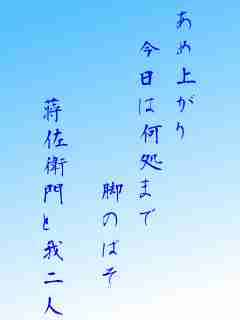 あめ上がり
今日は何処まで
脚のばそ
蒋佐衛門と我二人